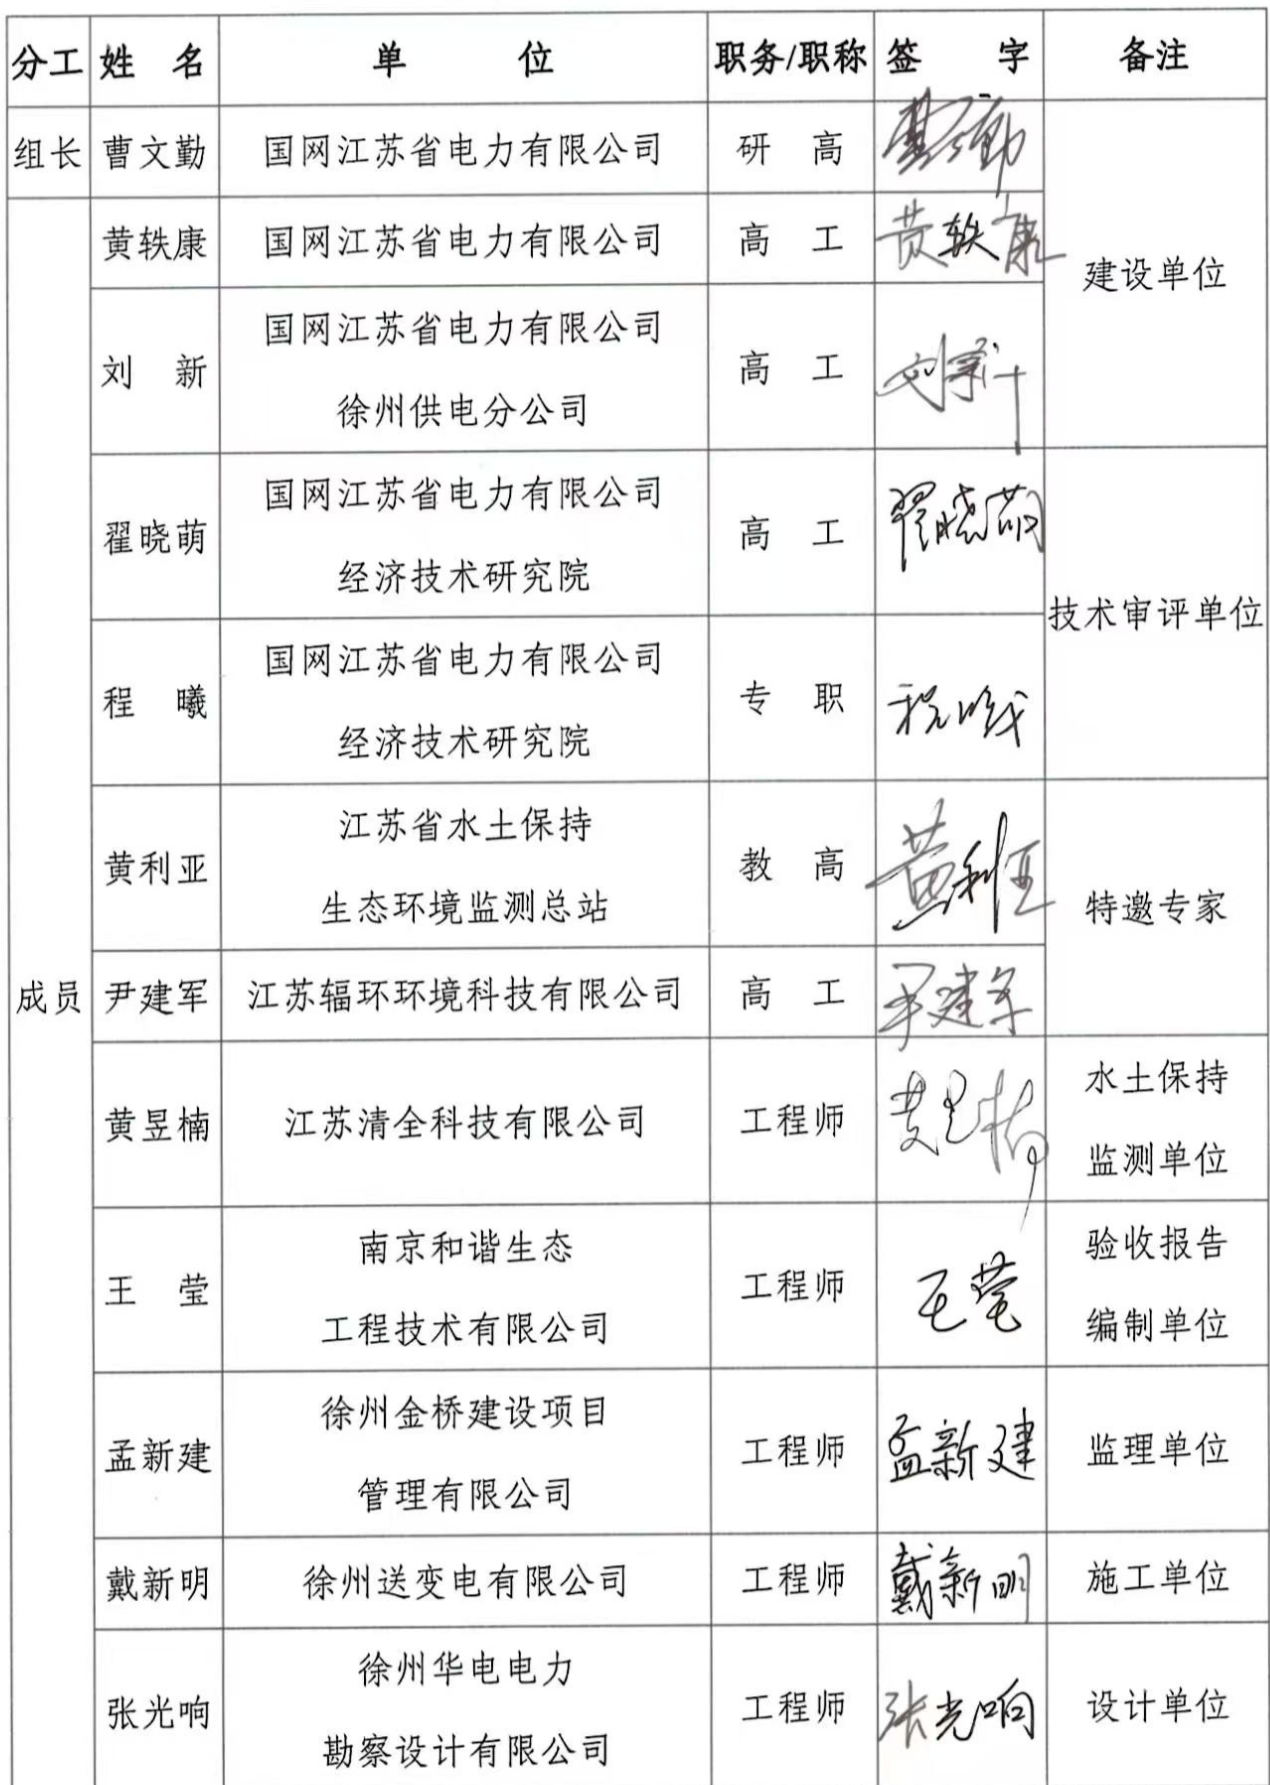 分工 姓 名 单 位 职务/职称 签 字 备注
组长 曹文勤 国网江苏省电力有限公司 研 高 曹文勤
黄轶康 国网江苏省电力有限公司 高 工 黄轶康
建设单位
刘 新 国网江苏省电力有限公司
徐州供电分公司
高 工 刘新
翟晓萌 国网江苏省电力有限公司
经济技术研究院
高 工 翟晓萌
技术审评单位
程 曦 国网江苏省电力有限公司
经济技术研究院
专 职 程曦
黄利亚 江苏省水土保持
生态环境监测总站
教 高 黄利亚
特邀专家
成员 尹建军 江苏辐环环境科技有限公司 高 工 尹建军
黄昱楠 江苏清全科技有限公司 工程师 黄昱楠
水土保持
监测单位
王 莹 南京和谐生态
工程技术有限公司
工程师 王莹
验收报告
编制单位
孟新建 徐州金桥建设项目
管理有限公司
工程师 孟新建 监理单位
戴新明 徐州送变电有限公司 工程师 戴新明 施工单位
张光响 徐州华电电力
勘察设计有限公司
工程师 张光响 设计单位